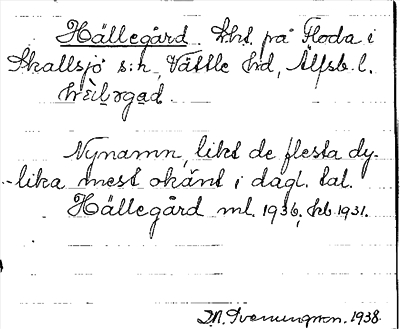 Hällegård lht. på Floda i
Skallsjö s:n, Vättle hd, Älfsb. l.
Nynamn, likt de flesta dy-
lika mest okänt i dagl. tal.
Hällegård ml. 1936, kb. 1931.
1938